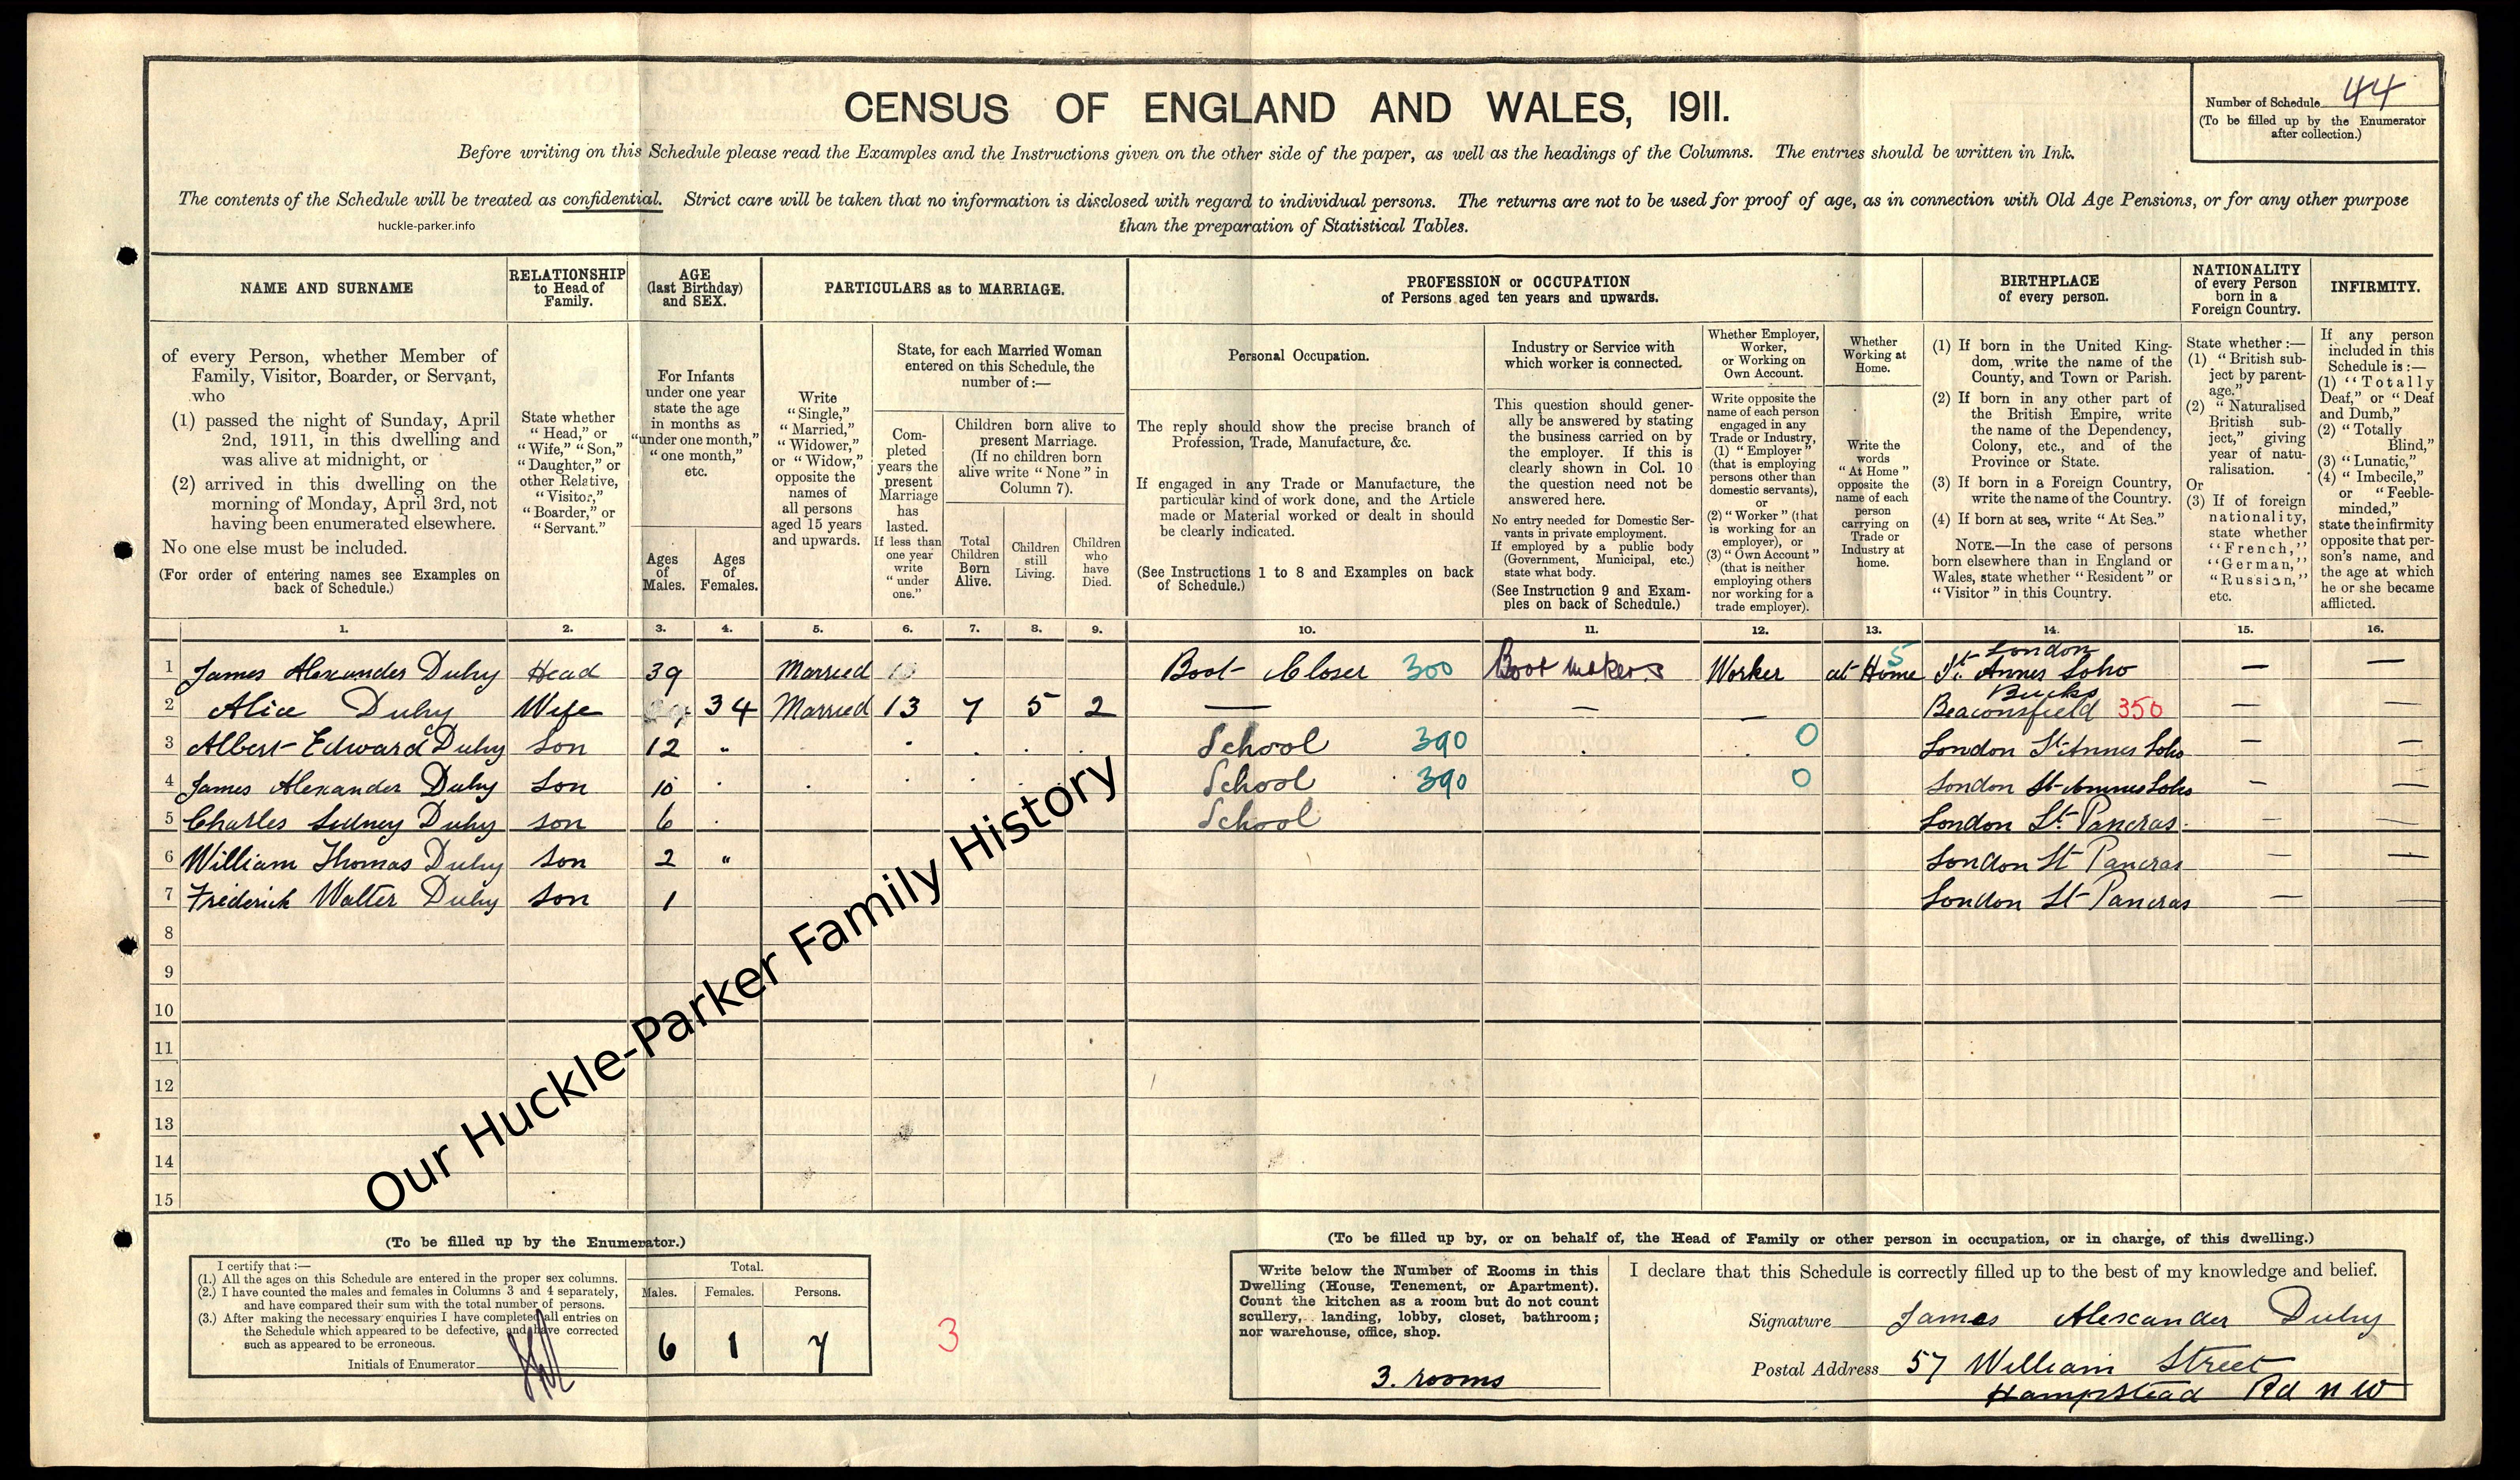 CENSUS OF ENGLAND AND WALES, 1911.
Number of Schedule 44
(To be filled up by the Enumerator
after collection.)
Before writing on this Schedule please read the Examples and the Instructions given on the other side of the paper, as well as the headings of the Columns. The entries should be written in Ink.
The contents of the Schedule will be treated as confidential. Strict care will be taken that no information is disclosed with regard to individual persons. The returns are not to be used for proof of age, as in connection with Old Age Pensions, or for any other purpose
than the preparation of Statistical Tables.
huckle-parker.info
NAME AND SURNAME
of every Person, whether Member of
Family, Visitor, Boarder, or Servant,
who
(1) passed the night of Sunday, April
2nd, 1911, in this dwelling and
was alive at midnight, or
(2) arrived in this dwelling on the
morning of Monday, April 3rd, not
having been enumerated elsewhere.
No one else must be included.
(For order of entering names see Examples on
back of Schedule.)
RELATIONSHIP
to Head of
Family.
State whether
“Head,” or
“Wife,” “Son,”
“Daughter,” or
other Relative,
“Visitor,”
“Boarder,” or
“Servant.”
AGE
(last Birthday)
and SEX.
For Infants
under one year
state the age
in months as
“under one month,”
“one month,”
etc.
Ages
of
Males.
Ages
of
Females.
PARTICULARS as to MARRIAGE.
Write
“Single,”
“Married,”
“Widower,”
or “Widow,”
opposite the
names of
all persons
aged 15 years
and upwards.
State, for each Married Woman
entered on this Schedule, the
number of :—
Com-
pleted
years the
present
Marriage
has
lasted.
If less than
one year
write
“under
one.”
Children born alive to
present Marriage.
(If no children born
alive write “None” in
Column 7).
Total
Children
Born
Alive.
Children
still
Living.
Children
who
have
Died.
PROFESSION or OCCUPATION
of Persons aged ten years and upwards.
Personal Occupation.
The reply should show the precise branch of
Profession, Trade, Manufacture, &c.
If engaged in any Trade or Manufacture, the
particular kind of work done, and the Article
made or Material worked or dealt in should
be clearly indicated.
(See Instructions 1 to 8 and Examples on back
of Schedule.)
Industry or Service with
which worker is connected.
This question should gener-
ally be answered by stating
the business carried on by
the employer. If this is
clearly shown in Col. 10
the question need not be
answered here.
No entry needed for Domestic Ser-
vants in private employment.
If employed by a public body
(Government, Municipal, etc.)
state what body.
(See Instruction 9 and Exam-
ples on back of Schedule.)
Whether Employer,
Worker,
or Working on
Own Account.
Write opposite the
name of each person
engaged in any
Trade or Industry,
(1) “Employer”
(that is employing
persons other than
domestic servants),
or
(2) “Worker” (that
is working for an
employer), or
(3) “Own Account”
(that is neither
employing others
nor working for a
trade employer).
Whether
Working at
Home.
Write the
words
“At Home”
opposite the
name of each
person
carrying on
Trade or
Industry at
home.
BIRTHPLACE
of every person.
(1) If born in the United King-
dom, write the name of the
County, and Town or Parish.
(2) If born in any other part of
the British Empire, write
the name of the Dependency,
Colony, etc., and of the
Province or State.
(3) If born in a Foreign Country,
write the name of the Country.
(4) If born at sea, write “At Sea.”
NOTE.—In the case of persons
born elsewhere than in England or
Wales, state whether “Resident” or
“Visitor” in this Country.
NATIONALITY
of every Person
born in a
Foreign Country.
State whether :—
(1) “British sub-
ject by parent-
age.”
(2) “Naturalised
British sub-
ject,” giving
year of natu-
ralisation.
Or
(3) If of foreign
nationality,
state whether
“French,”
“German,”
“Russian,”
etc.
INFIRMITY.
If any person
included in this
Schedule is :—
(1) “Totally
Deaf,” or “Deaf
and Dumb,”
(2) “Totally
Blind,”
(3) “Lunatic,”
(4) “Imbecile,”
or “Feeble-
minded,”
state the infirmity
opposite that per-
son’s name, and
the age at which
he or she became
afflicted.
1. 2. 3. 4. 5. 6. 7. 8. 9. 10. 11. 12. 13. 14. 15. 16.
1 James Alexander Duhy Head 39 Married Boot Closer 300 Boot makers Worker at Home 5 London St. Annes Soho — —
2 Alice Duhy Wife 34 Married 13 7 5 2 — — — Bucks Beaconsfield 350 — —
3 Albert Edward Duhy Son 12 " School 390 0 London St Annes Soho — —
4 James Alexander Duhy Son 10 School 390 0 London St Annes Soho — —
5 Charles Sidney Duhy Son 6 School London St. Pancras — —
6 William Thomas Duhy Son 2 " London St Pancras — —
7 Frederick Walter Duhy Son 1 London St Pancras — —
8
9
10
11
12
13
14
15
Our Huckle-Parker Family History
(To be filled up by the Enumerator.)
I certify that :—
(1.) All the ages on this Schedule are entered in the proper sex columns.
(2.) I have counted the males and females in Columns 3 and 4 separately,
and have compared their sum with the total number of persons.
(3.) After making the necessary enquiries I have completed all entries on
the Schedule which appeared to be defective, and have corrected
such as appeared to be erroneous.
Initials of Enumerator
Total.
Males. Females. Persons.
6 1 7
3
(To be filled up by, or on behalf of, the Head of Family or other person in occupation, or in charge, of this dwelling.)
Write below the Number of Rooms in this
Dwelling (House, Tenement, or Apartment).
Count the kitchen as a room but do not count
scullery, landing, lobby, closet, bathroom;
nor warehouse, office, shop.
3. rooms
I declare that this Schedule is correctly filled up to the best of my knowledge and belief.
Signature James Alexander Duhy
Postal Address 57 William Street
Hampstead Rd N W